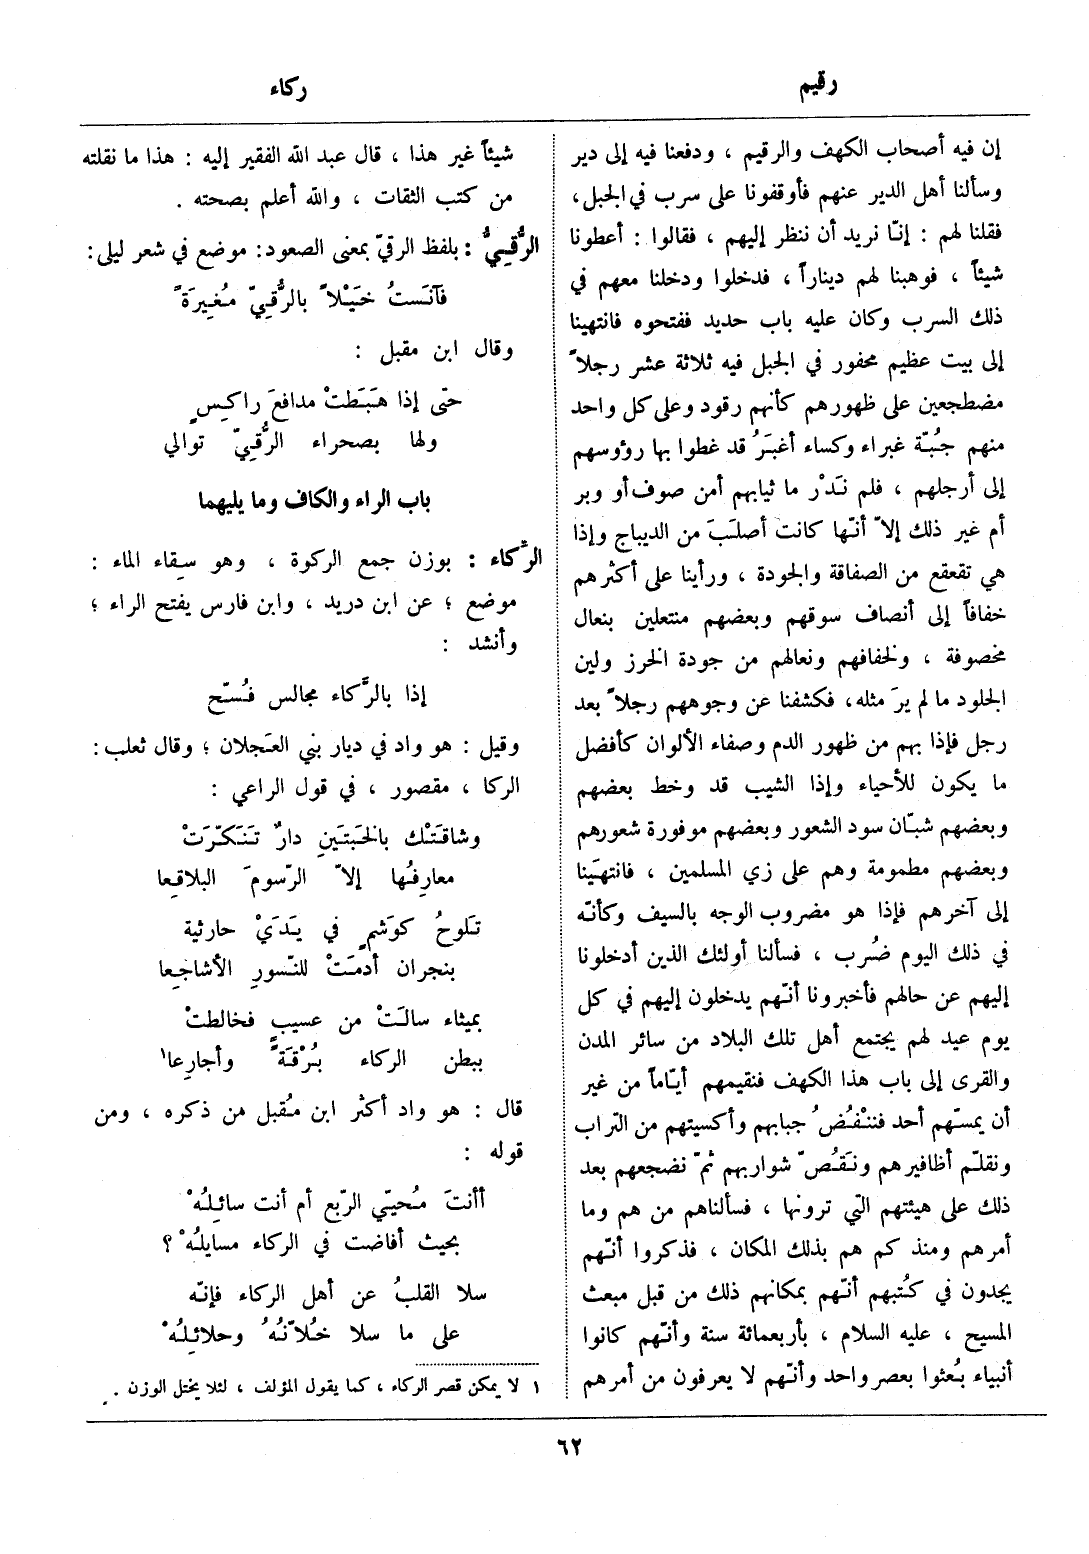 رقيم
ركاء
إن فيه أصحاب الكهف والرقيم ، ودفعنا فيه إلى دير
وسألنا أهل الدير عنهم فأوقفونا على سرب في الجبل ،
فقلنا لهم : إنّا نريد أن ننظر إليهم ، فقالوا : أعطونا
شيئاً ، فوهبنا لهم ديناراً ، فدخلوا ودخلنا معهم في
ذلك السرب وكان عليه باب حديد ففتحوه فانتهينا
إلى بيت عظيم محفور في الجبل فيه ثلاثة عشر رجلاً
مضطجعين على ظهورهم كأنهم رقود وعلى كل واحد
منهم جُبّة غبراء وكساء أغبَرُ قد غطوا بها رؤوسهم
إلى أرجلهم ، فلم نَدْر ما ثيابهم أمن صوف أو وبر
أم غير ذلك إلاّ أنّها كانت أصلَبَ من الديباج وإذا
هي تقعقع من الصفاقة والجودة ، ورأينا على أكثرهم
خفافاً إلى أنصاف سوقهم وبعضهم منتعلين بنعال
مخصوفة ، ولخفافهم ونعالهم من جودة الخرز ولين
الجلود ما لم يرَ مثله ، فكشفنا عن وجوههم رجلاً بعد
رجل فإذا بهم من ظهور الدم وصفاء الألوان كأفضل
ما يكون للأحياء وإذا الشيب قد وخط بعضهم
وبعضهم شبّان سود الشعور وبعضهم موفورة شعورهم
وبعضهم مطمومة وهم على زي المسلمين ، فانتهَينا
إلى آخرهم فإذا هو مضروب الوجه بالسيف وكأنّه
في ذلك اليوم ضُرب ، فسألنا أولئك الذين أدخلونا
إليهم عن حالهم فأخبرونا أنّهم يدخلون إليهم في كل
يوم عيد لهم يجتمع أهل تلك البلاد من سائر المدن
والقرى إلى باب هذا الكهف فنقيمهم أيّاماً من غير
أن يمسّهم أحد فننْفُضُ جبابهم وأكسيتهم من التراب
ونقلّم أظافيرهم ونَقُصّ شواربهم ثمّ نضجعهم بعد
ذلك على هيئتهم التي ترونها ، فسألناهم من هم وما
أمرهم ومنذ كم هم بذلك المكان ، فذكروا أنّهم
يجدون في كُتبهم أنّهم بمكانهم ذلك من قبل مبعث
المسيح ، عليه السلام ، بأربعمائة سنة وأنّهم كانوا
أنبياء بُعثوا بعصر واحد وأنّهم لا يعرفون من أمرهم
شيئاً غير هذا ، قال عبد الله الفقير إليه : هذا ما نقلته
من كتب الثقات ، والله أعلم بصحته .
الرُّقيُّ : بلفظ الرقيّ بمعنى الصعود : موضع في شعر ليلى :
فآنَستُ خَيْلاً بالرُّقيّ مُغيرَةً
وقال ابن مقبل :
حتّى إذا هَبَطتْ مدافعَ راكِسٍ
ولها بصحراء الرُّقيّ توالي
باب الراء والكاف وما يليهما
الرِّكاء : بوزن جمع الركوة ، وهو سِقاء الماء :
موضع ؛ عن ابن دريد ، وابن فارس يفتح الراء ؛
وأنشد :
إذا بالرَّكاء مجالس فُسّح
وقيل : هو واد في ديار بني العَجلان ؛ وقال ثعلب :
الركا ، مقصور ، في قول الراعي :
وشاقَتْك بالخَبتَينِ دارٌ تَنَكّرَتْ
معارِفُها إلاّ الرّسومَ البلاقِعا
تَلوحُ كوَشمٍ في يَدَيْ حارثية
بنجران أدمَتْ للنّسورِ الأشاجِعا
بميثاء سالَتْ من عسيبٍ فخالطتْ
ببطن الركاء بُرْقَةً وأجارِعا١
قال : هو واد أكثر ابن مُقبل من ذكره ، ومن
قوله :
أأنتَ مُحيّي الرّبع أم أنت سائلُهْ
بحيث أفاضت في الركاء مسايلُهْ ؟
سلا القلبُ عن أهل الركاء فإنّه
على ما سلا خُلاّنُهُ وحلائلُهْ
١ لا يمكن قصر الركاء ، كما يقول المؤلف ، لئلا يختل الوزن .
٦٢